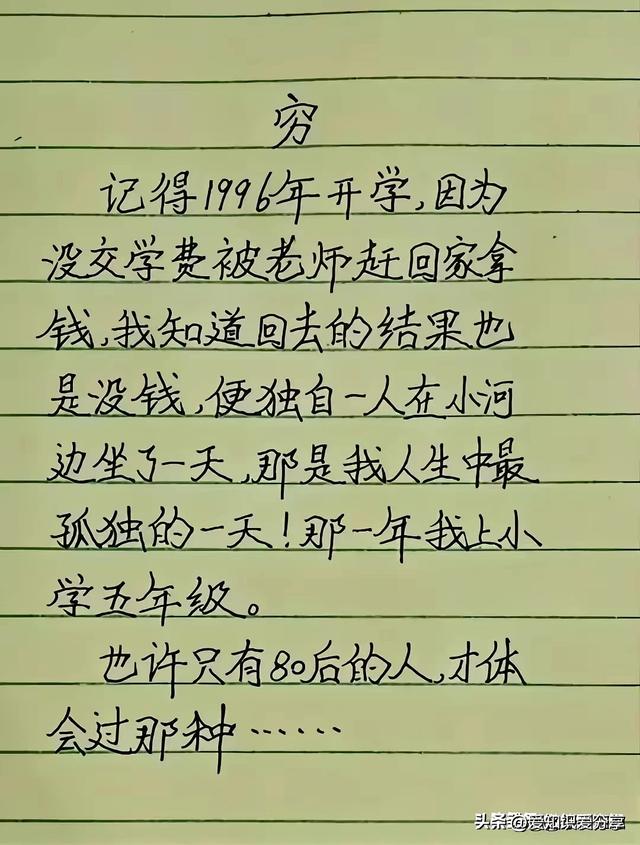 穷
记得1996年开学,因为
没交学费被老师赶回家拿
钱,我知道回去的结果也
是没钱,便独自一人在小河
边坐了一天,那是我人生中最
孤独的一天!那一年我上小
学五年级。
也许只有80后的人,才体
会过那种……
头条@爱知识爱分享